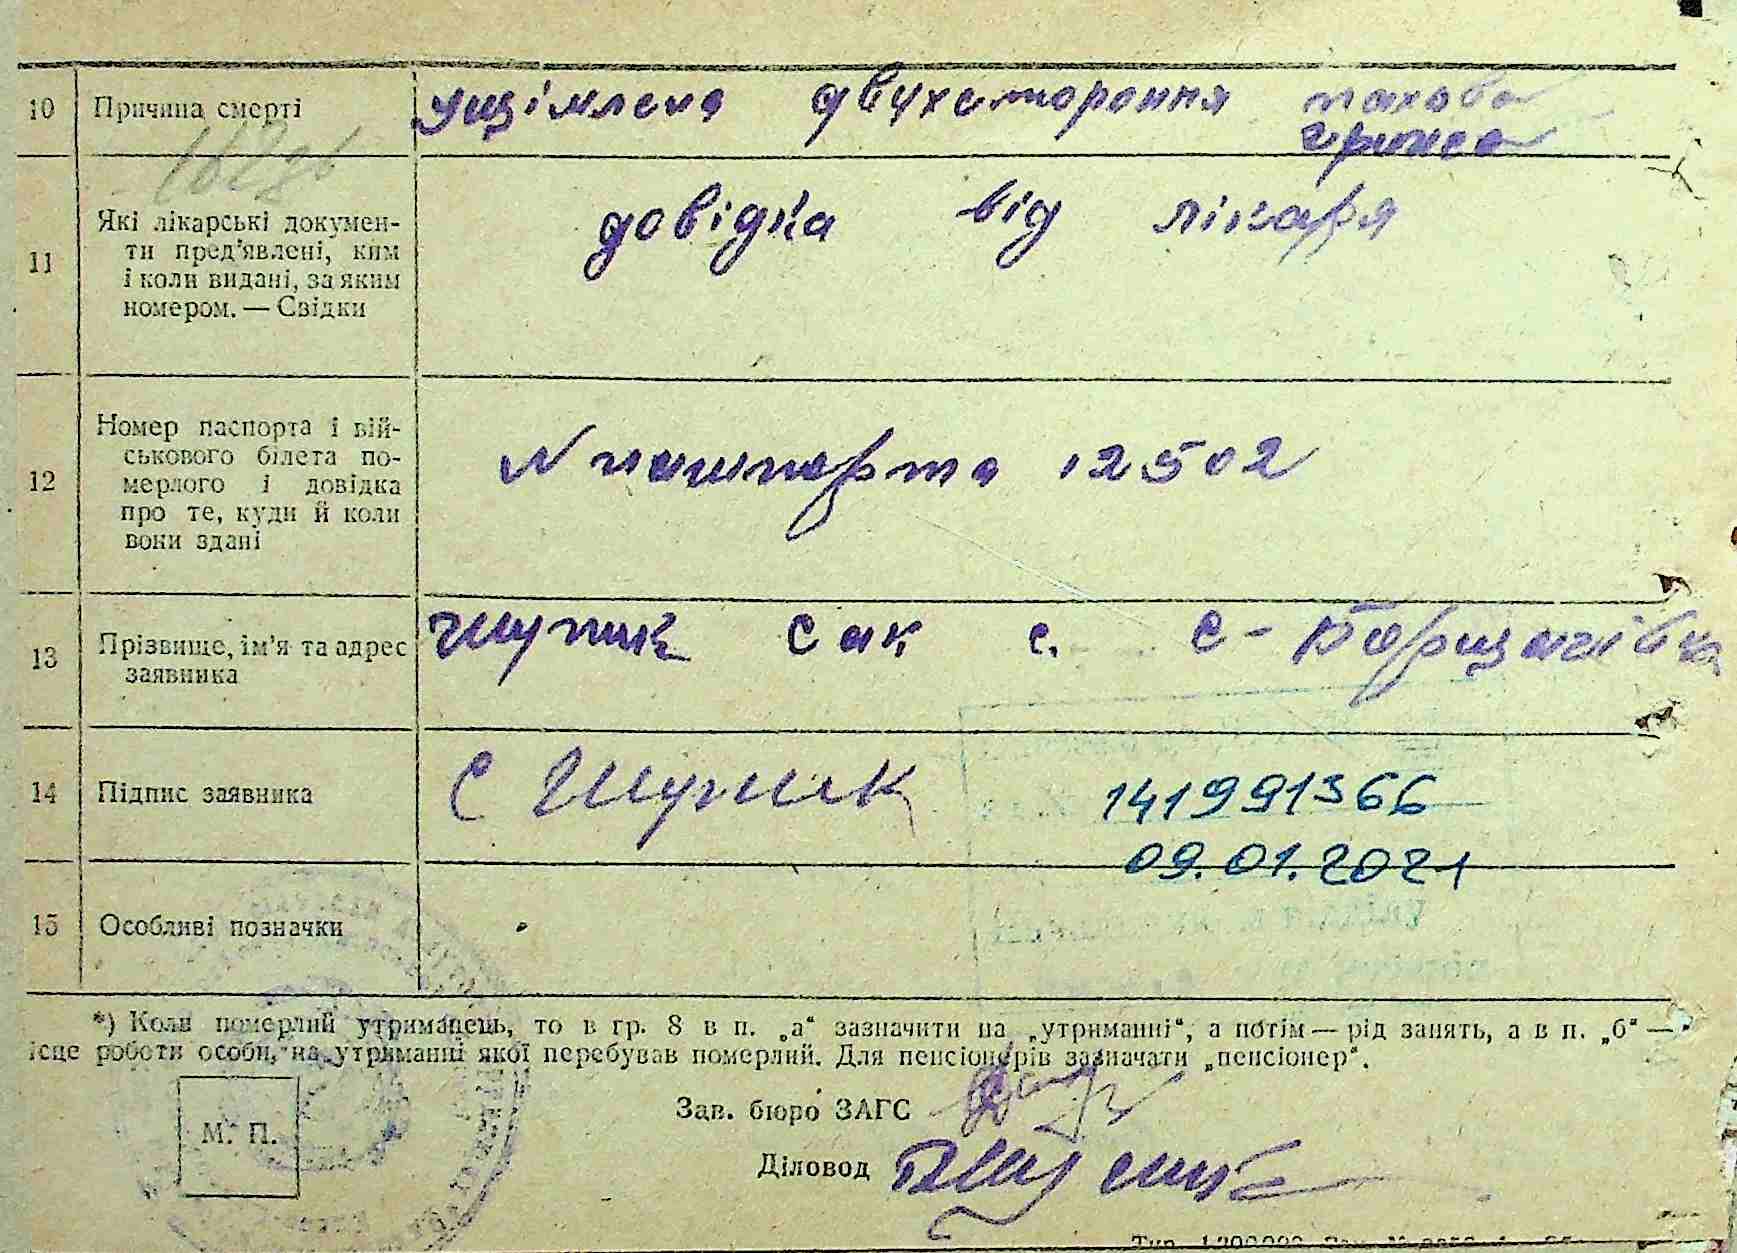 10 Причина смерті ущімлена двухстороння пахова
грижа
11 Які лікарські докумен-
ти пред'явлені, ким
і коли видані, за яким
номером. — Свідки
довідка від лікаря
12 Номер паспорта і вій-
ськового білета по-
мерлого і довідка
про те, куди й коли
вони здані
N пашпорта 12502
13 Прізвище, ім'я та адрес
заявника
Шупик Сак с. С-Борщагівка
14 Підпис заявника С Шупик 141991366
09.01.2021
15 Особливі позначки
*) Коли померлий утриманець, то в гр. 8 в п. „а“ зазначити на „утриманні“, а потім — рід занять, а в п. „б“ —
ісце роботи особи, на утриманні якої перебував померлий. Для пенсіонерів зазначати „пенсіонер“.
М. П.
Зав. бюро ЗАГС
Діловод